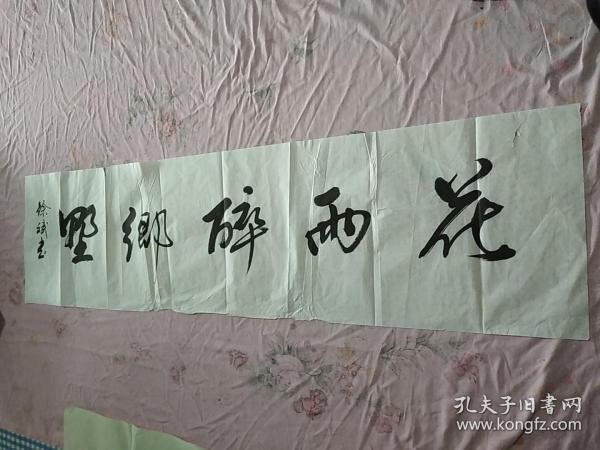 花雨醉鄉野
徐斌书
孔夫子旧書网
www.kongfz.com